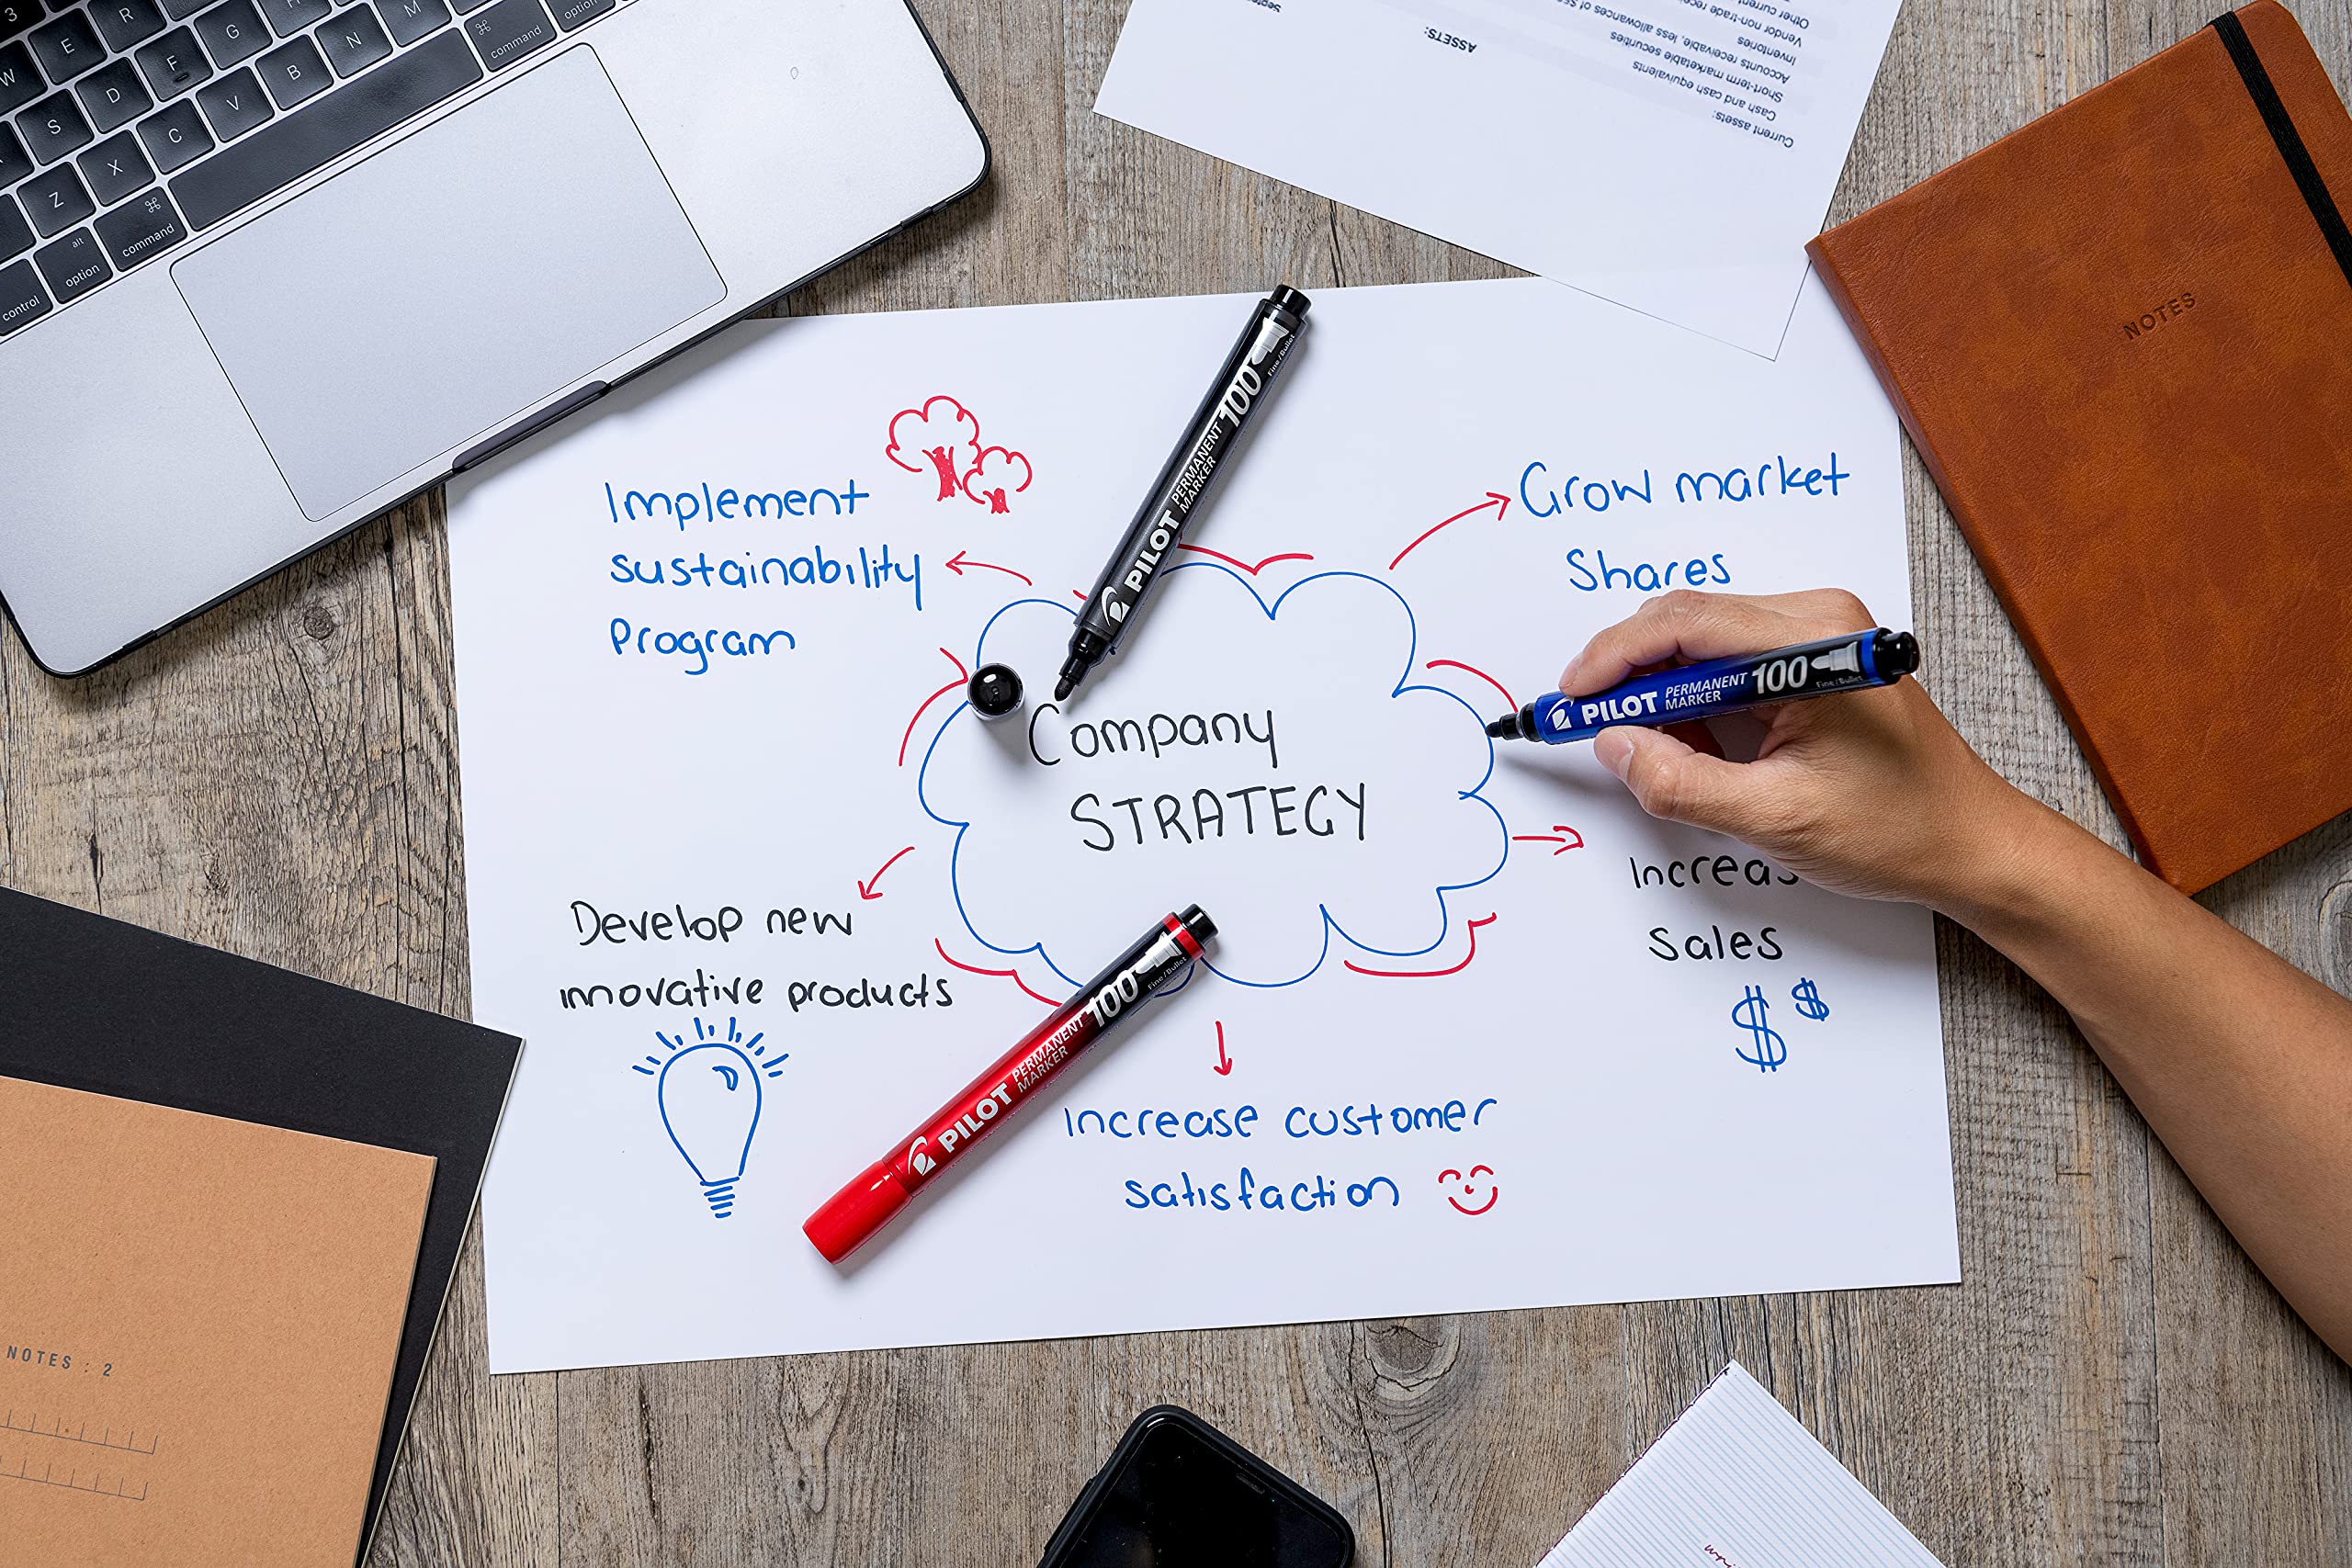 3
E
R
W
S
D
F
G
Z
X
C
V
B
N
M
control
alt
option
⌘
command
⌘
command
option
ASSETS:
Current assets:
Cash and cash equivalents
Short-term marketable securities
Accounts receivable, less allowances of
Inventories
Vendor non-trade
Other current
NOTES
Implement
sustainability
Program
Grow market
Shares
Company
STRATEGY
Increas
Sales
$ $
Develop new
innovative products
Increase customer
satisfaction
PILOT PERMANENT MARKER 100 Fine/Bullet
PILOT PERMANENT MARKER 100 Fine/Bullet
PILOT PERMANENT MARKER 100 Fine/Bullet
NOTES : 2